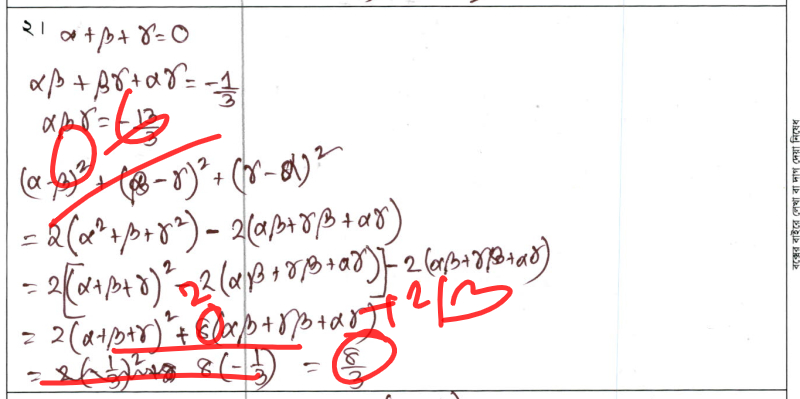 ২১ α + β + γ = 0
αβ + βγ + αγ = -1/3
αβγ = -13/3
(α-β)² + (β-γ)² + (γ-α)²
= 2(α²+β+γ²) - 2(αβ+γβ+αγ)
= 2[(α+β+γ)² - 2(αβ+γβ+αγ)] - 2(αβ+γβ+αγ)
= 2(α+β+γ)² + 6(αβ+γβ+αγ)
= 8(-1/3) = 8/3
বক্সের বাইরে লেখা বা দাগ দেয়া নিষেধ